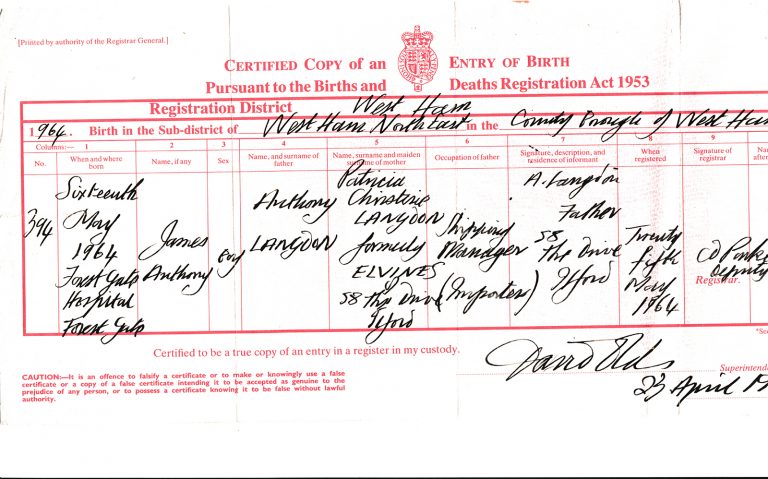 [Printed by authority of the Registrar General.]
CERTIFIED COPY OF AN ENTRY OF BIRTH
Pursuant to the Births and Deaths Registration Act 1953
Registration District West Ham
1964. Birth in the Sub-district of West Ham North East in the County Borough of West Ham
Columns:— 1 2 3 4 5 6 7 8 9
No. When and where born Name, if any Sex Name, and surname of father Name, surname and maiden surname of mother Occupation of father Signature, description, and residence of informant When registered Signature of registrar Na
after
394
Sixteenth
May
1964
Forest Gate
Hospital
Forest Gate
James
Anthony
Boy
Anthony
LANGDON
Patricia
Christine
LANGDON
formerly
ELVINES
58 The Drive
Ilford
Shipping
Manager
(Importers)
A. Langdon
Father
58
The Drive
Ilford
Twenty
fifth
May
1964
Deputy
Registrar.
*See
Certified to be a true copy of an entry in a register in my custody.
David
Superintende
23 April
CAUTION:—It is an offence to falsify a certificate or to make or knowingly use a false
certificate or a copy of a false certificate intending it to be accepted as genuine to the
prejudice of any person, or to possess a certificate knowing it to be false without lawful
authority.